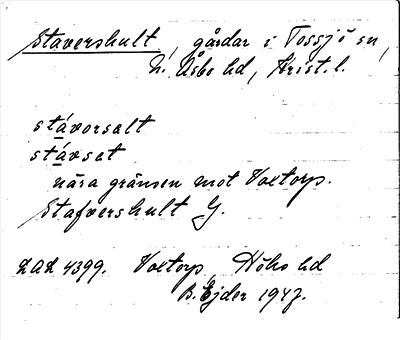 Stavershult, gårdar i Tossjö sn,
N. Åsbo hd, Krist. l.
stávorsalt
stávsat
nära gränsen mot Voxtorp.
Stafvershult G.
LAL 4399. Voxtorp, Höks hd
B. Ejder 1947.